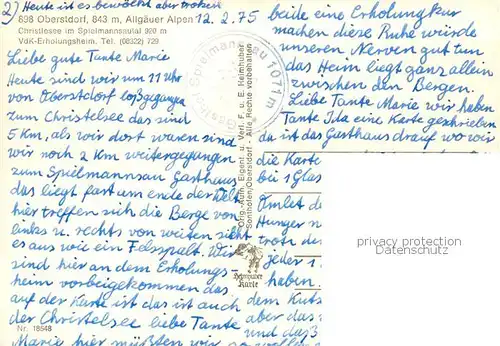 2) Heute ist es bewölkt aber trocken
898 Oberstdorf, 843 m, Allgäuer Alpen
12.2.75
Christlesee im Spielmannsautal 920 m
VdK-Erholungsheim. Tel. (08322) 729
Liebe gute Tante Marie
Heute sind wir um 11 Uhr
von Oberstdorf losgegangen
zum Christelsee das sind
5 Km, als wir dort waren sind
wir noch 2 Km weitergegangen
zum Spielmannsau Gasthaus
das liegt fast am ende der Welt
hier treffen sich die Berge von
links u. rechts von weiten sieht
es aus wie ein Felsspalt. Wir
sind hier an dem Erholungs
heim vorbeigekommen das
auf der Karte ist das ist auch
der Christelsee liebe Tante
Nr. 18548
Marie hier müßten wir
Gasthof Spielmannsau 1071 m
Orig.-Aufn. Eigent. u. Verl. F. u. E. Heimhuber
Sonthofen/Oberstdorf - Alle Rechte vorbehalten
Heimhuber
Karte
beide eine Erholungkur
machen diese Ruhe würde
unseren Nerven gut tun
das Heim liegt ganz allein
zwischen den Bergen.
Liebe Tante Marie wir haben
Tante Ida eine Karte geschrieben
da ist das Gasthaus drauf wo wir
die Karte
bei 1 Glas
Omlet de
Hunger
trotz de
jeder 1.
haben
dem Kuts
aber das
und das
privacy protection
Datenschutz